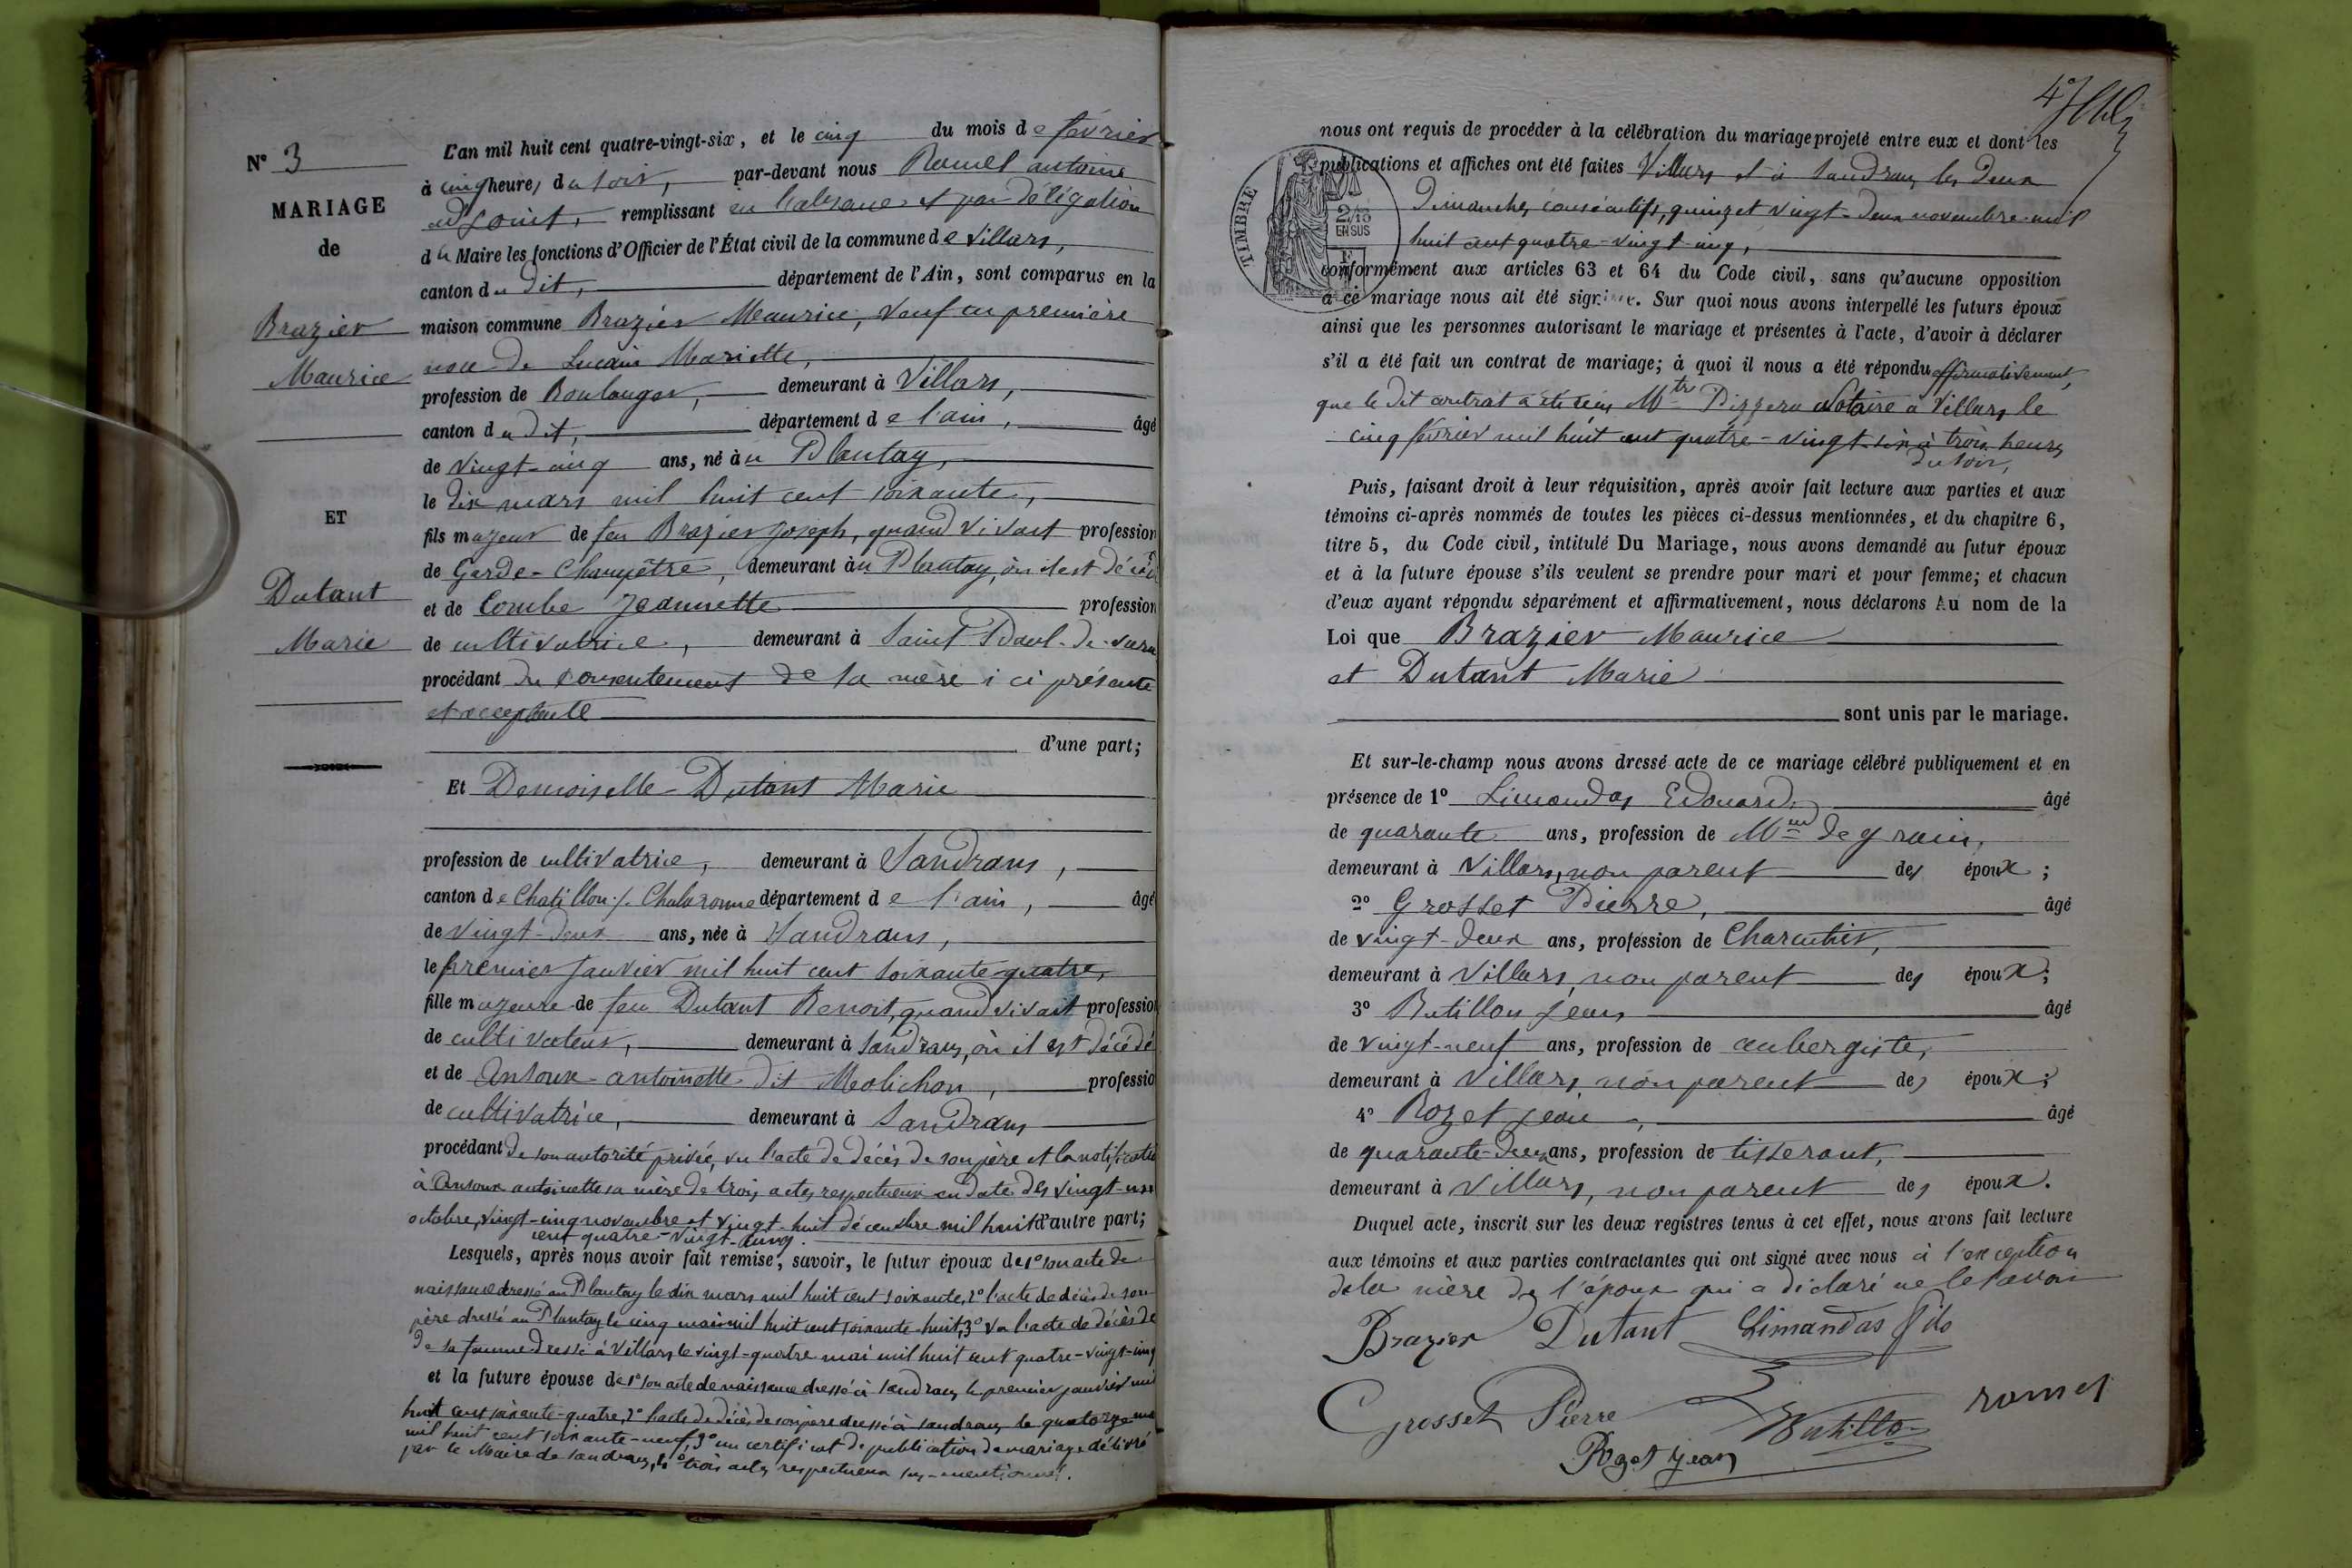 N° 3
MARIAGE
de
Brazier
Maurice
ET
Dutant
Marie
L'an mil huit cent quatre-vingt-six, et le cinq du mois de février
à cinq heures du soir, par-devant nous Romel antoine
adjoint, remplissant en l'absence et par délégation
du Maire les fonctions d'Officier de l'État civil de la commune de Villars,
canton du dit, département de l'Ain, sont comparus en la
maison commune Brazier Maurice, veuf en première
noce de Lucain Mariette,
profession de Boulanger, demeurant à Villars,
canton du dit, département de l'ain, âgé
de vingt-cinq ans, né au Plantay,
le dix mars mil huit cent soixante,
fils majeur de feu Brazier Joseph, quand vivait profession
de Garde-Champêtre, demeurant au Plantay, où il est décédé
et de Combe Jeannette profession
de cultivatrice, demeurant à Saint Paul-de-varax
procédant du consentement de sa mère ici présente
et acceptante
d'une part;
Et Demoiselle Dutant Marie
profession de cultivatrice, demeurant à Sandrans,
canton de Chatillon s/ Chalaronne département de l'ain, âgé
de vingt-deux ans, née à Sandrans,
le premier Janvier mil huit cent soixante-quatre,
fille majeure de feu Dutant Benoit, quand vivait profession
de cultivateur, demeurant à Sandrans, où il est décédé
et de Ansoux antoinette dit Molichon, profession
de cultivatrice, demeurant à Sandrans
procédant de son autorité privée, vu l'acte de décès de son père et la notification
à Ansoux antoinette sa mère de trois actes respectueux en date des vingt-un
octobre, vingt-cinq novembre et vingt-huit décembre mil huit d'autre part;
cent quatre-vingt-cinq.
Lesquels, après nous avoir fait remise, savoir, le futur époux de 1° son acte de
naissance dressé au Plantay le dix mars mil huit cent soixante, 2° l'acte de décès de son
père dressé au Plantay le cinq mai mil huit cent soixante-huit, 3° vu l'acte de décès de
de sa femme dressé à Villars le vingt-quatre mai mil huit cent quatre-vingt-cinq
et la future épouse de 1° son acte de naissance dressé à Sandrans le premier janvier mil
huit cent soixante-quatre, 2° l'acte de décès de son père dressé à Sandrans le quatorze
mil huit cent soixante-neuf, 3° un certificat de publication de mariage délivré
par le Maire de Sandrans, 4° trois actes respectueux sus-mentionnés.
4
TIMBRE
EN SUS
nous ont requis de procéder à la célébration du mariage projeté entre eux et dont les
publications et affiches ont été faites Villars et à Sandrans les deux
Dimanches consécutifs, quinze et vingt-deux novembre mil
huit cent quatre-vingt-cinq,
conformément aux articles 63 et 64 du Code civil, sans qu'aucune opposition
à ce mariage nous ait été signifiée. Sur quoi nous avons interpellé les futurs époux
ainsi que les personnes autorisant le mariage et présentes à l'acte, d'avoir à déclarer
s'il a été fait un contrat de mariage; à quoi il nous a été répondu affirmativement,
que le dit contrat a été reçu Mtr Notaire à Villars le
cinq février mil huit cent quatre-vingt-six à trois heures
du soir,
Puis, faisant droit à leur réquisition, après avoir fait lecture aux parties et aux
témoins ci-après nommés de toutes les pièces ci-dessus mentionnées, et du chapitre 6,
titre 5, du Code civil, intitulé Du Mariage, nous avons demandé au futur époux
et à la future épouse s'ils veulent se prendre pour mari et pour femme; et chacun
d'eux ayant répondu séparément et affirmativement, nous déclarons Au nom de la
Loi que Brazier Maurice
et Dutant Marie
sont unis par le mariage.
Et sur-le-champ nous avons dressé acte de ce mariage célébré publiquement et en
présence de 1° Limandas Edouard, âgé
de quarante ans, profession de Md de grains,
demeurant à Villars, non parent des époux;
2° Grosset Pierre, âgé
de vingt-deux ans, profession de Charcutier,
demeurant à Villars, non parent des époux;
3° Butillon Jean âgé
de vingt-neuf ans, profession de aubergiste,
demeurant à Villars, non parent des époux;
4° Rozet jean, âgé
de quarante-deux ans, profession de tisserant,
demeurant à Villars, non parent des époux.
Duquel acte, inscrit sur les deux registres tenus à cet effet, nous avons fait lecture
aux témoins et aux parties contractantes qui ont signé avec nous à l'exception
de la mère de l'époux qui a déclaré ne le savoir
Brazier Dutant Limandas fils
Grosset Pierre Butillon romel
Rozet Jean